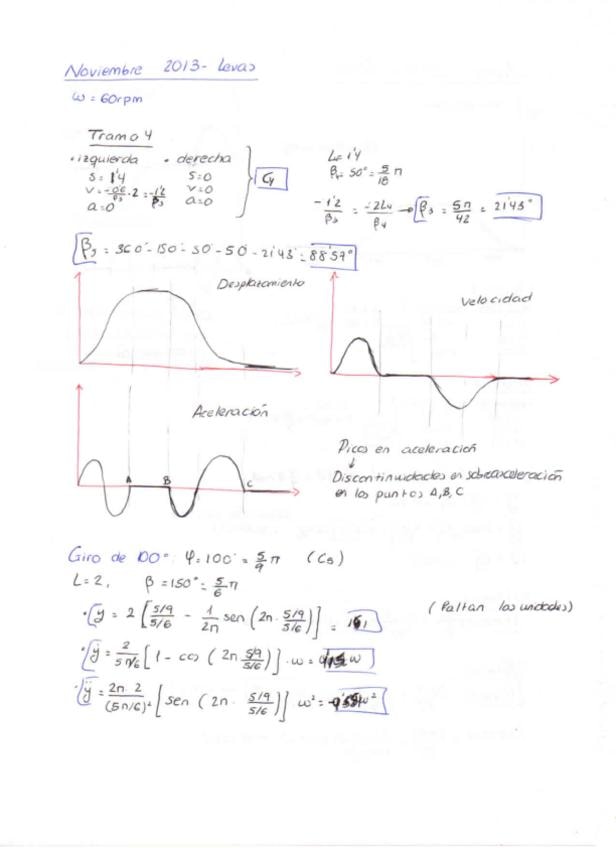 Noviembre 2013 - Levas
ω = 60rpm
Tramo 4
• izquierda • derecha
S = 1'4 S=0
V = -0'6/β₃ · 2 = -1'2/β₃ V=0
a=0 a=0
C4
L=1'4
β₄ = 50° = 5/18 π
-1'2/β₃ = -2L₄/β₄ → β₃ = 5π/42 = 21'43°
= 360 - 150 - 50 - 50 - 21'43 = 88'57°
Desplazamiento
Velocidad
Aceleración
A B C
Picos en aceleración
↓
Discontinuidades en sobreaceleración
en los puntos A,B,C
Giro de 100°: φ = 100° = 5/9 π (C5)
L=2, β = 150° = 5/6 π
• y = 2 [ (5/9)/(5/6) - 1/2π sen (2π · (5/9)/(5/6)) ] =
(Faltan las unidades)
• ẏ = 2/(5π/6) [ 1 - cos (2π (5/9)/(5/6)) ] · ω =
• ÿ = 2π·2/(5π/6)² [ sen (2π · (5/9)/(5/6)) ] ω² =